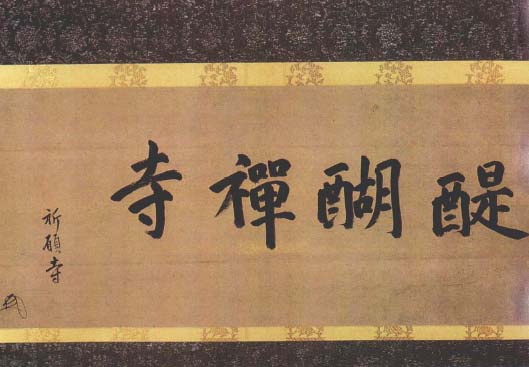 醍醐禪寺
祈願寺